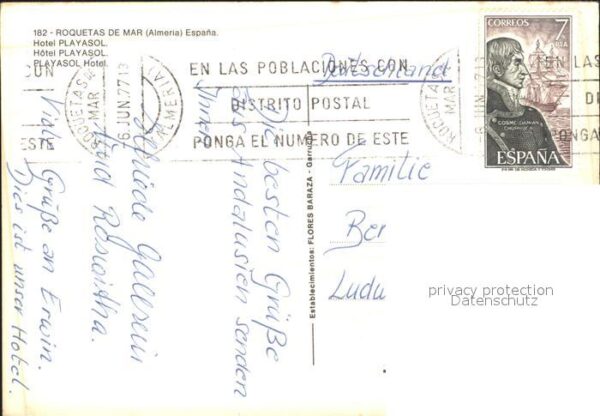 182 - ROQUETAS DE MAR (Almeria) España.
Hotel PLAYASOL.
Hôtel PLAYASOL.
PLAYASOL Hotel.
CUN
ESTE
ROQUETAS DE MAR
6 JUN. 77 13
(ALMERIA)
EN LAS POBLACIONES CON
DISTRITO POSTAL
PONGA EL NUMERO DE ESTE
ROQUETAS
MAR
DI
PONGA
CORREOS
7
PTA
COSME DAMIAN
CHURRUCA
ESPAÑA
Establecimientos: FLORES BARAZA - Garrucha
Die besten Grüße
aus Andalusien senden
Ihnen
und
Viele Grüße an Erwin.
Dies ist unser Hotel.
Deutschland
Familie
Ber
Ludw
privacy protection
Datenschutz